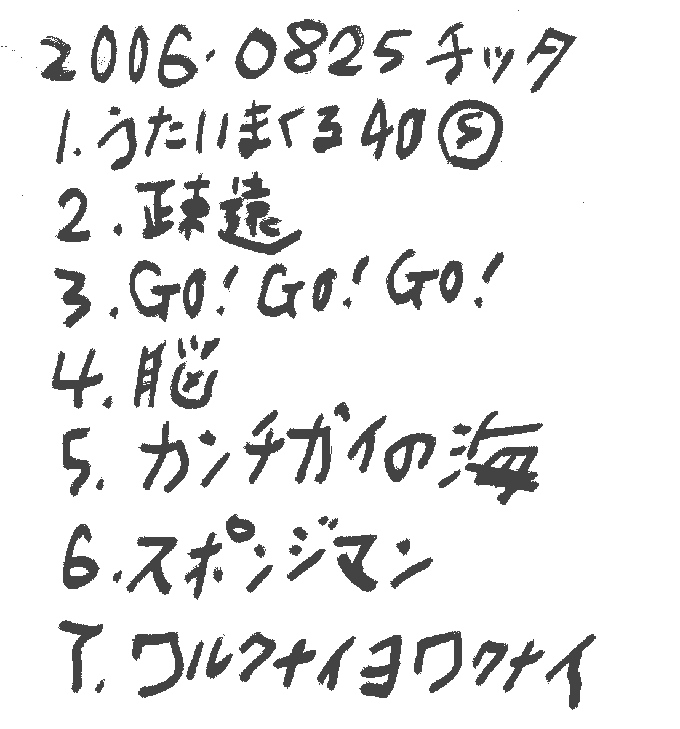 2006.0825チッタ
1.うたいまくる40⑤
2.疎遠
3.GO!GO!GO!
4.脳
5.カンチガイの海
6.スポンジマン
7.ワルクナイヨワクナイ